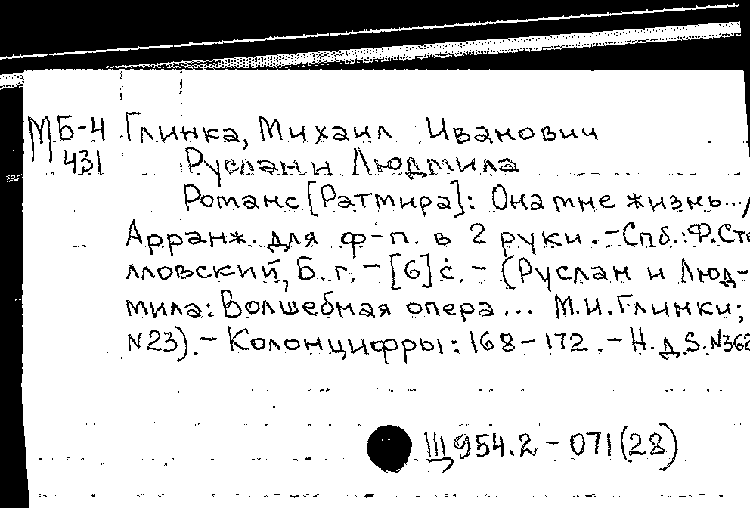 МБ-4 Глинка, Михаил Иванович
431 Руслан и Людмила
Романс [Ратмира]: Она мне жизнь.../
Арранж. для ф-п. в 2 руки.-Спб.: Ф.Сте
лловский, Б. г. - [6] с. - (Руслан и Люд-
мила: Волшебная опера... М.И.Глинки;
N23). - Колонцифры: 168-172. - Н.д.S.N362
Щ954.2-071(28)